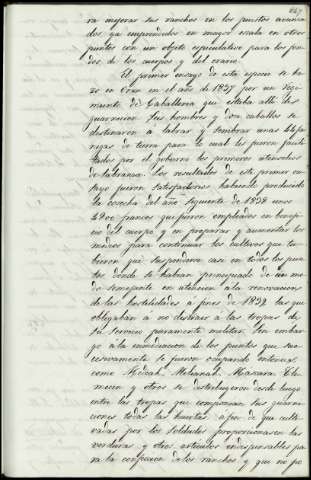 647
ra mejorar sus ranchos en los puestos avanza-
dos, ya emprendidos en mayor escala en otros
puntos con un objeto especulativo para los fon-
dos, de los cuerpos y del erario.
El primer ensayo de esta especie se hi-
zo en Oran en el año de 1837 por un regi-
miento de Caballeria que estaba alli de
guarnicion. Sus hombres y dos caballos se
destinaron a labrar y sembrar unas
negas de tierra para lo cual les fueron facili-
tados por el gobierno los primeros utensilios
de labranza. Los resultados de este primer en-
sayo fueron satisfactorios habiendo producido
la cosecha del año siguiente de 1838 unos
francos que fueron empleados en benefi-
cio del cuerpo y en preparar y aumentar los
medios para continuar los cultivos que tu-
bieron que suspenderse casi en todos los pun-
tos donde se habian principiado de un mo-
do semejante en atencion a la renovacion
de las hostilidades á fines de 1839 las que
obligaban á no destinar a las tropas de
su servicio puramente militar. Sin embar-
go á la inmediacion de los puntos que suc-
cesivamente se fueron ocupando entonces
como Medeah, Milianah, Mascara, Tle-
mecen y otros se distribuyeron desde luego
entre las tropas que componian sus guarni-
ciones todas las huertas, á fin de que culti-
vadas por los soldados proporcionasen las
verduras y otros articulos indispensables pa-
ra la confeccion de los ranchos y que no po-